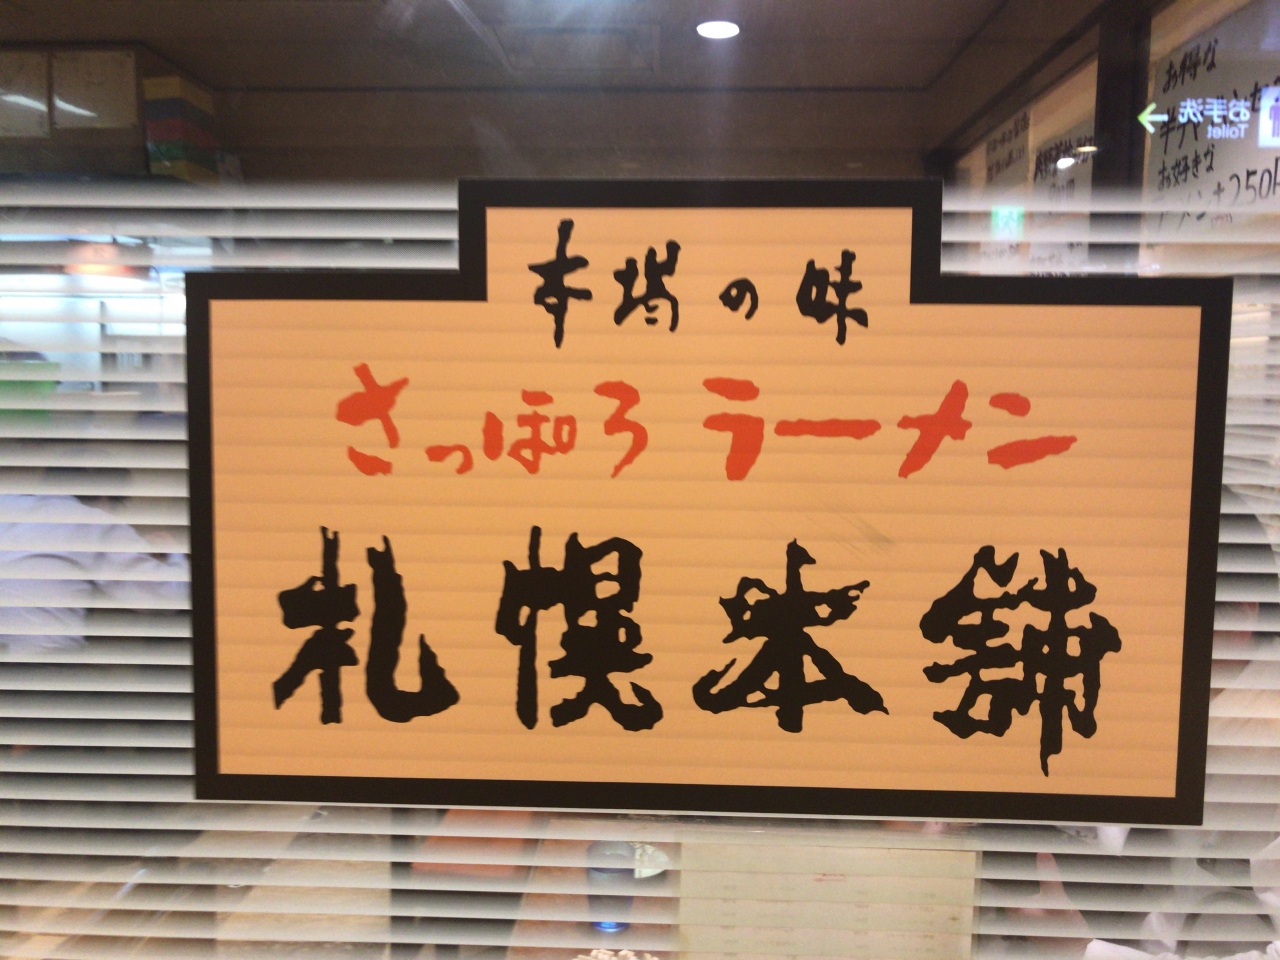 本場の味
さっぽろ ラーメン
札幌本舗
お手洗
Toilet
お得な
お好きな